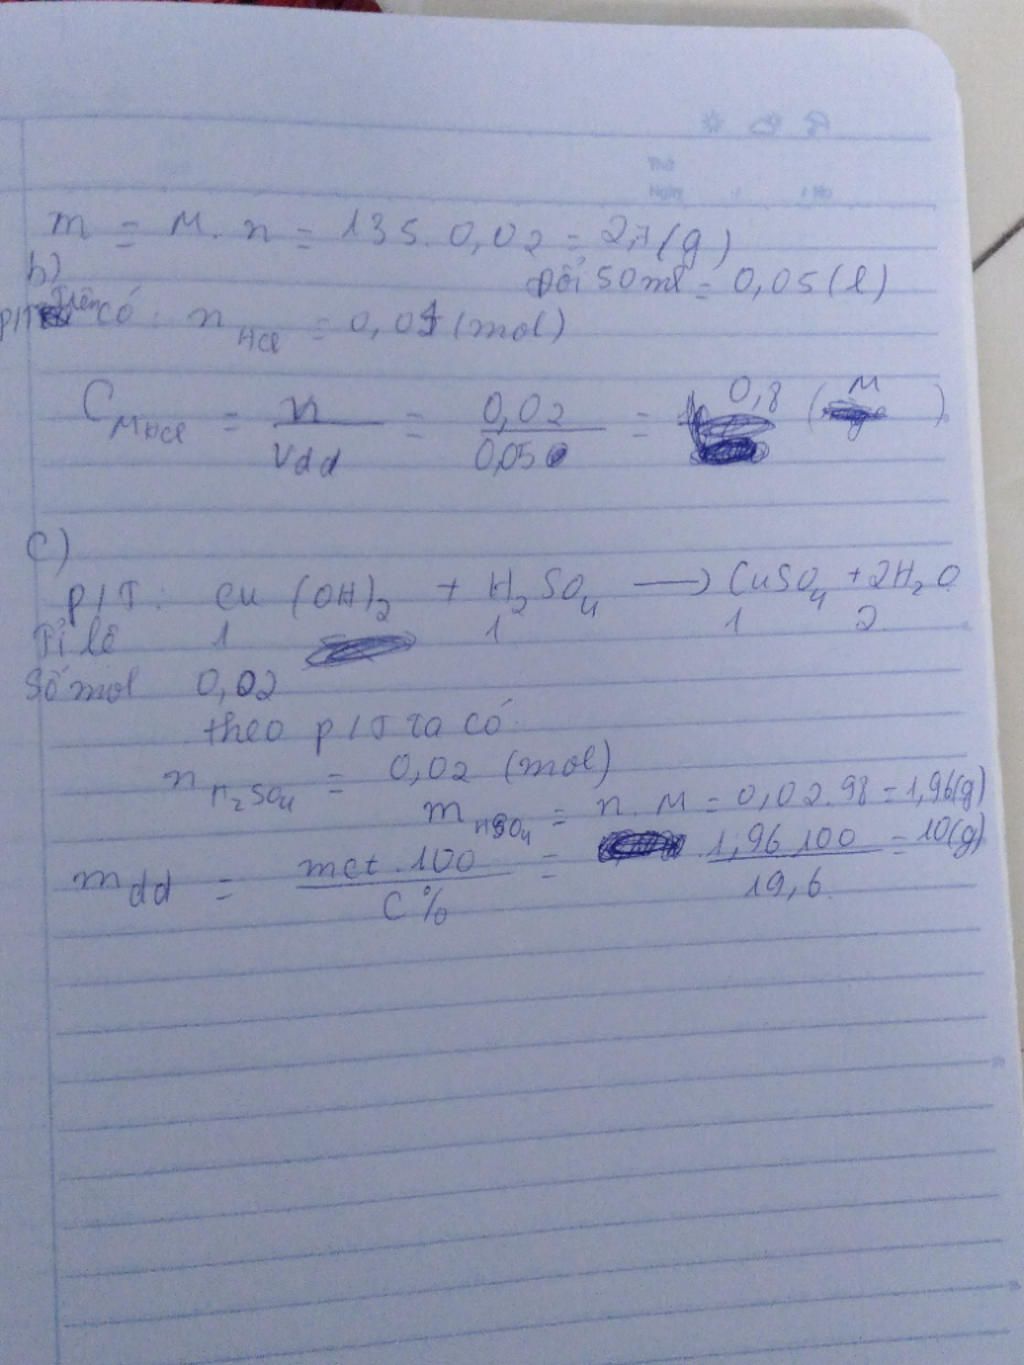 m = M. n = 135. 0,02 = 2,7 (g)
b)
Đổi 50ml = 0,05 (l)
PTT trên có : n HCl = 0,04 (mol)
C M HCl = n / Vdd = 0,02 / 0,05 = 0,8 (M)
c)
PTT : Cu (OH)2 + H2SO4 → CuSO4 + 2H2O
Tỉ lệ 1 1 1 2
Số mol 0,02
theo PTT ta có
n H2SO4 = 0,02 (mol)
m H2SO4 = n. M = 0,02. 98 = 1,96 (g)
mdd = mct . 100 / C% = 1,96 . 100 / 19,6 = 10 (g)